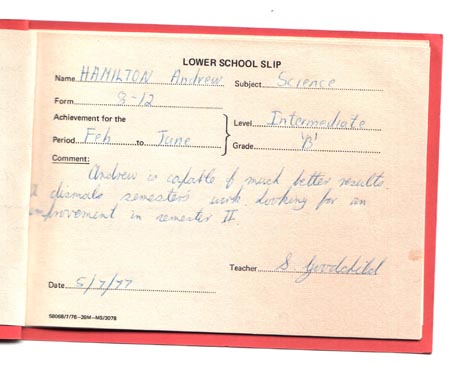 LOWER SCHOOL SLIP
Name HAMILTON Andrew Subject Science
Form 8-12
Achievement for the
Period Feb to June
Level Intermediate
Grade 'B'
Comment:
Andrew is capable of much better results.
A dismals semester's work. Looking for an
improvement in semester II.
Teacher S Goodchild
Date 5/7/77
58068/7/76-20M-MS/3078